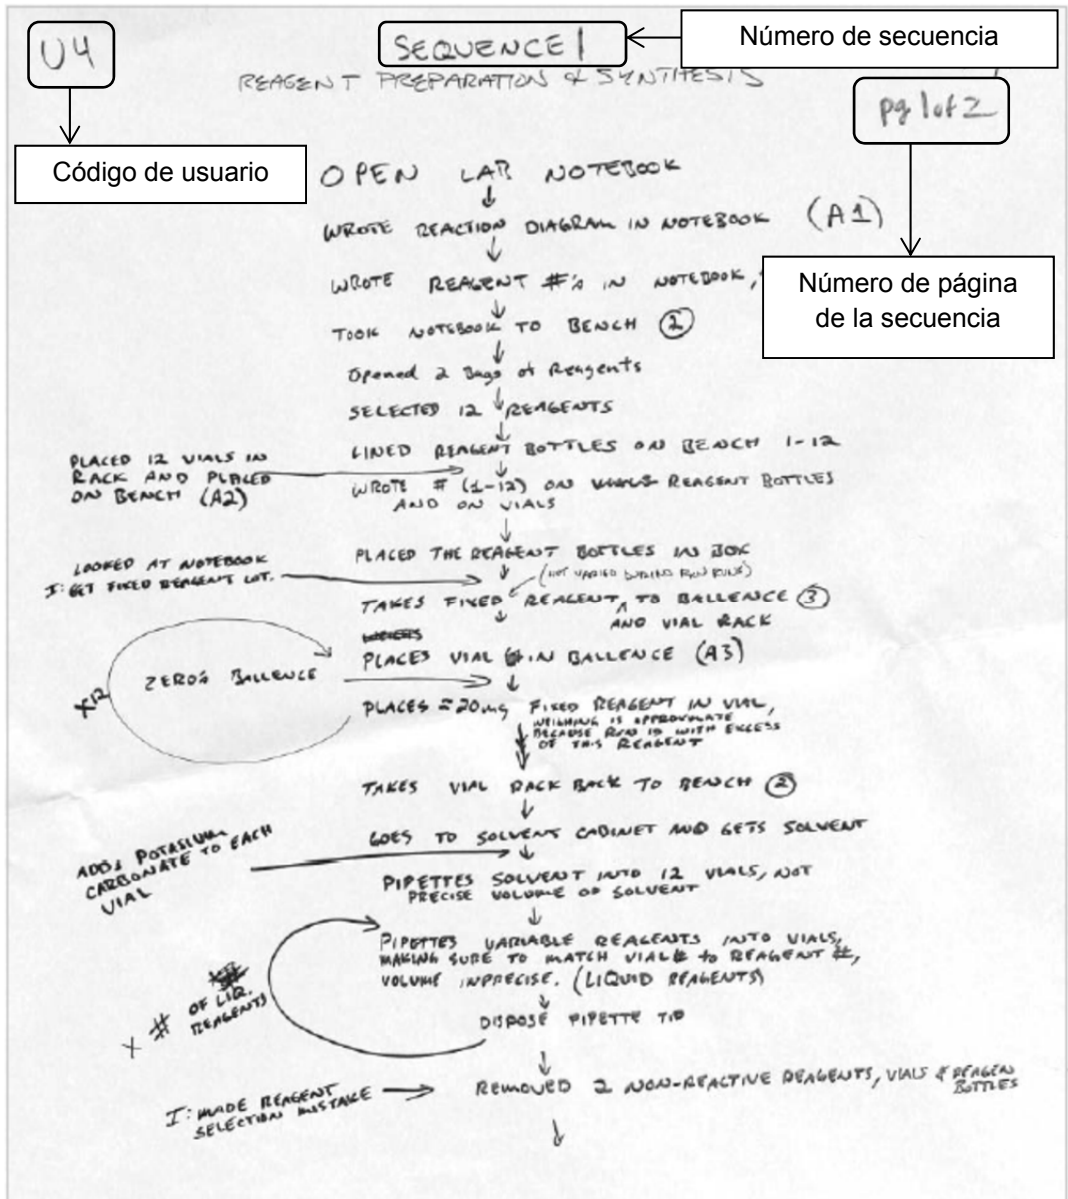 U4
SEQUENCE 1
Número de secuencia
REAGENT PREPARATION & SYNTHESIS
pg 1 of 2
Código de usuario
OPEN LAB NOTEBOOK
WROTE REACTION DIAGRAM IN NOTEBOOK (A1)
WROTE REAGENT #'s IN NOTEBOOK,
Número de página
de la secuencia
TOOK NOTEBOOK TO BENCH 2
Opened 2 Bags of Reagents
SELECTED 12 REAGENTS
LINED REAGENT BOTTLES ON BENCH 1-12
PLACED 12 VIALS IN
RACK AND PLACED
ON BENCH (A2)
WROTE # (1-12) ON VIALS REAGENT BOTTLES
AND ON VIALS
PLACED THE REAGENT BOTTLES IN BOX
LOOKED AT NOTEBOOK
I: GET FIXED REAGENT LOT.
(NOT VARIED DURING RUN)
TAKES FIXED REAGENT TO BALLENCE 3
AND VIAL RACK
PLACES VIAL IN BALLENCE (A3)
ZERO'S BALLENCE
X12
PLACES ≈20mg FIXED REAGENT IN VIAL,
WEIGHING IS APPROXIMATE
BECAUSE RUN IS WITH EXCESS
OF THIS REAGENT
TAKES VIAL RACK BACK TO BENCH 2
GOES TO SOLVENT CABINET AND GETS SOLVENT
ADDS POTASIUM
CARBONATE TO EACH
VIAL
PIPETTES SOLVENT INTO 12 VIALS, NOT
PRECISE VOLUME OF SOLVENT
PIPETTES VARIABLE REAGENTS INTO VIALS,
MAKING SURE TO MATCH VIAL# to REAGENT #,
VOLUME INPRECISE. (LIQUID REAGENTS)
X # OF LIQ.
REAGENTS
DISPOSE PIPETTE TIP
REMOVED 2 NON-REACTIVE REAGENTS, VIALS & REAGEN
BOTTLES
I: MADE REAGENT
SELECTION MISTAKE